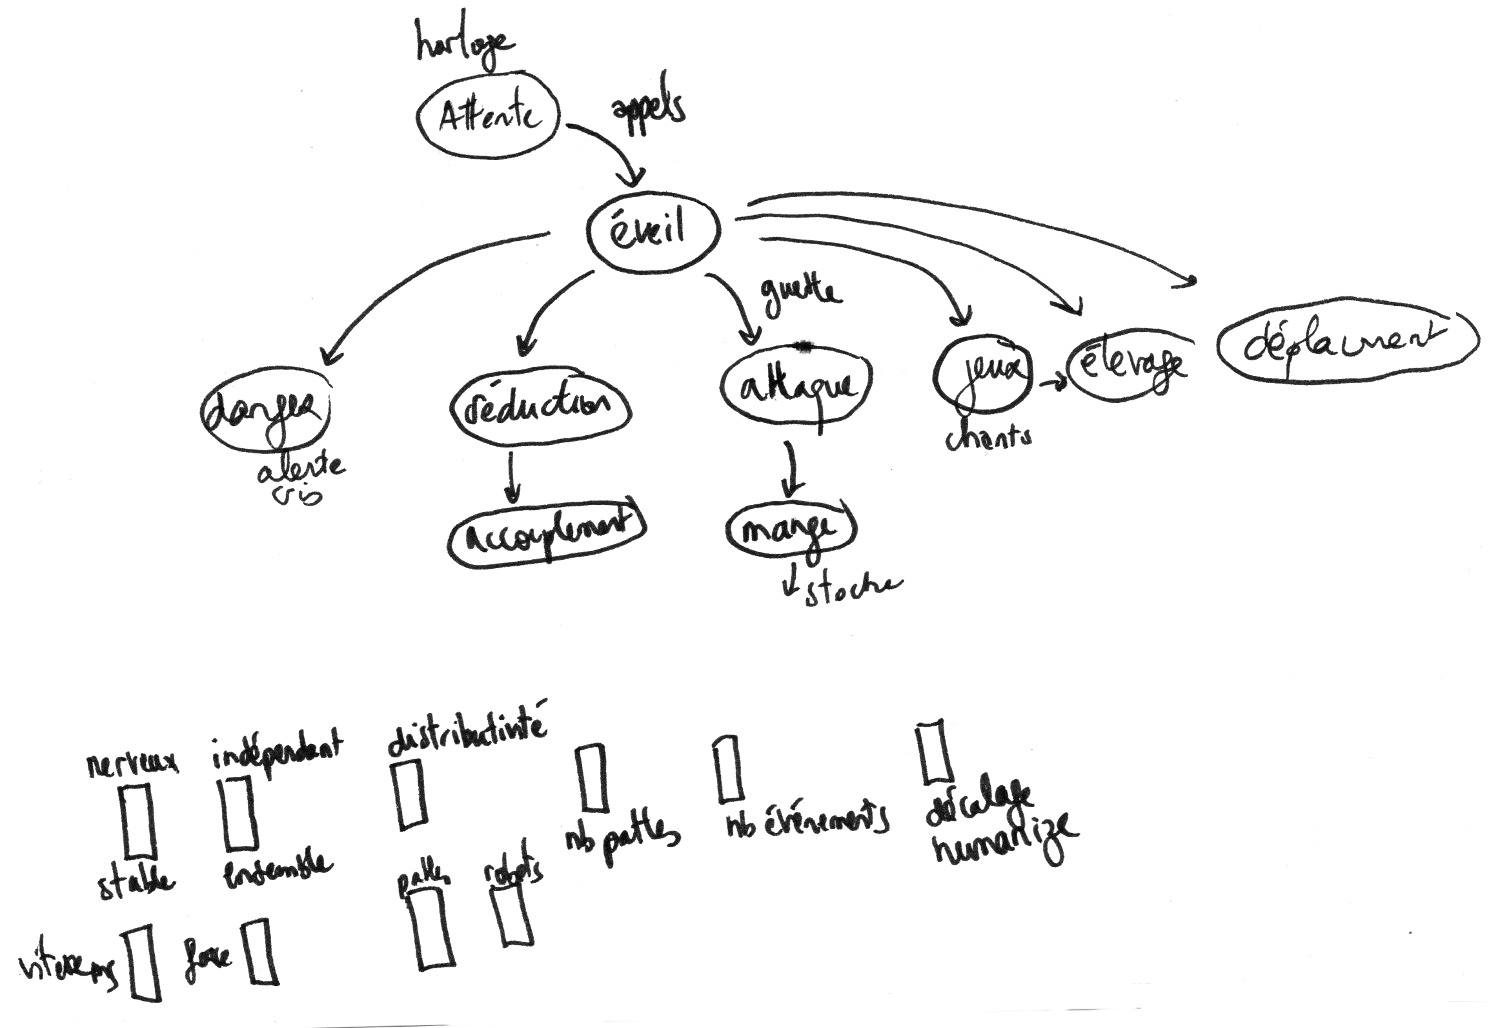 horloge
Attente
appels
éveil
guette
danger
alerte
cris
séduction
accouplement
attaque
mange
stocke
jeux
chants
élevage
déplacement
nerveux
stable
indépendant
ensemble
distributivité
pattes
robots
nb pattes
nb événements
décalage
humanize
force